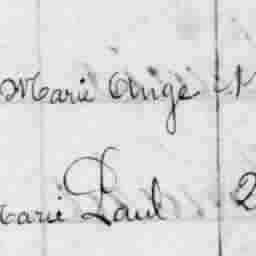 Marie Ange
Marie Paul 2